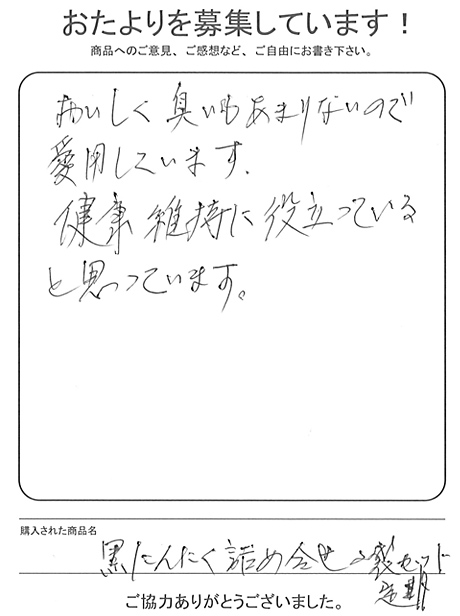 おたよりを募集しています！
商品へのご意見、ご感想など、ご自由にお書き下さい。
おいしく臭いもあまりないので
愛用しています.
健康維持に役立っている
と思っています。
購入された商品名
黒にんにく詰め合せ 袋セット
定期
ご協力ありがとうございました。